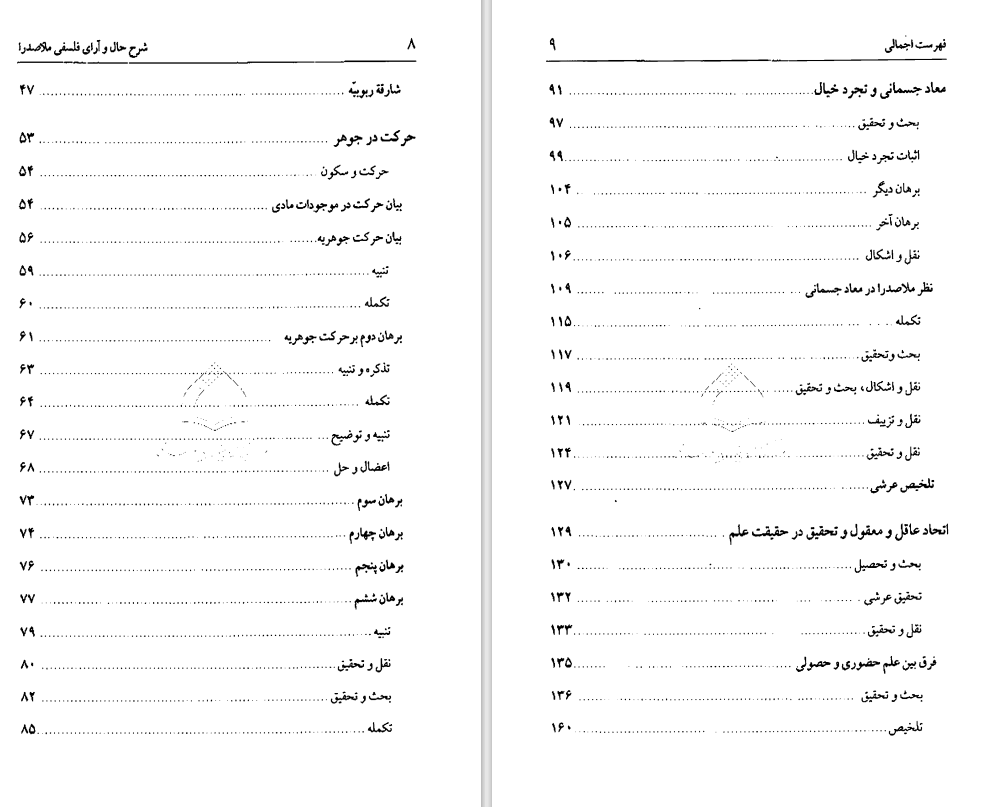 ۸ شرح حال و آرای فلسفی ملاصدرا
شارقة ربوبیّه ۴۷
حرکت در جوهر ۵۳
حرکت و سکون ۵۴
بیان حرکت در موجودات مادی ۵۴
بیان حرکت جوهریه ۵۶
تنبیه ۵۹
تکمله ۶۰
برهان دوم بر حرکت جوهریه ۶۱
تذکره و تنبیه ۶۳
تکمله ۶۴
تنبیه و توضیح ۶۷
اعضال و حل ۶۸
برهان سوم ۷۳
برهان چهارم ۷۴
برهان پنجم ۷۶
برهان ششم ۷۷
تنبیه ۷۹
نقل و تحقیق ۸۰
بحث و تحقیق ۸۲
تکمله ۸۵
فهرست اجمالی ۹
معاد جسمانی و تجرد خیال ۹۱
بحث و تحقیق ۹۷
اثبات تجرد خیال ۹۹
برهان دیگر ۱۰۴
برهان آخر ۱۰۵
نقل و اشکال ۱۰۶
نظر ملاصدرا در معاد جسمانی ۱۰۹
تکمله ۱۱۵
بحث و تحقیق ۱۱۷
نقل و اشکال، بحث و تحقیق ۱۱۹
نقل و تزییف ۱۲۱
نقل و تحقیق ۱۲۴
تلخیص عرشی ۱۲۷
اتحاد عاقل و معقول و تحقیق در حقیقت علم ۱۲۹
بحث و تحصیل ۱۳۰
تحقیق عرشی ۱۳۲
نقل و تحقیق ۱۳۳
فرق بین علم حضوری و حصولی ۱۳۵
بحث و تحقیق ۱۳۶
تلخیص ۱۶۰